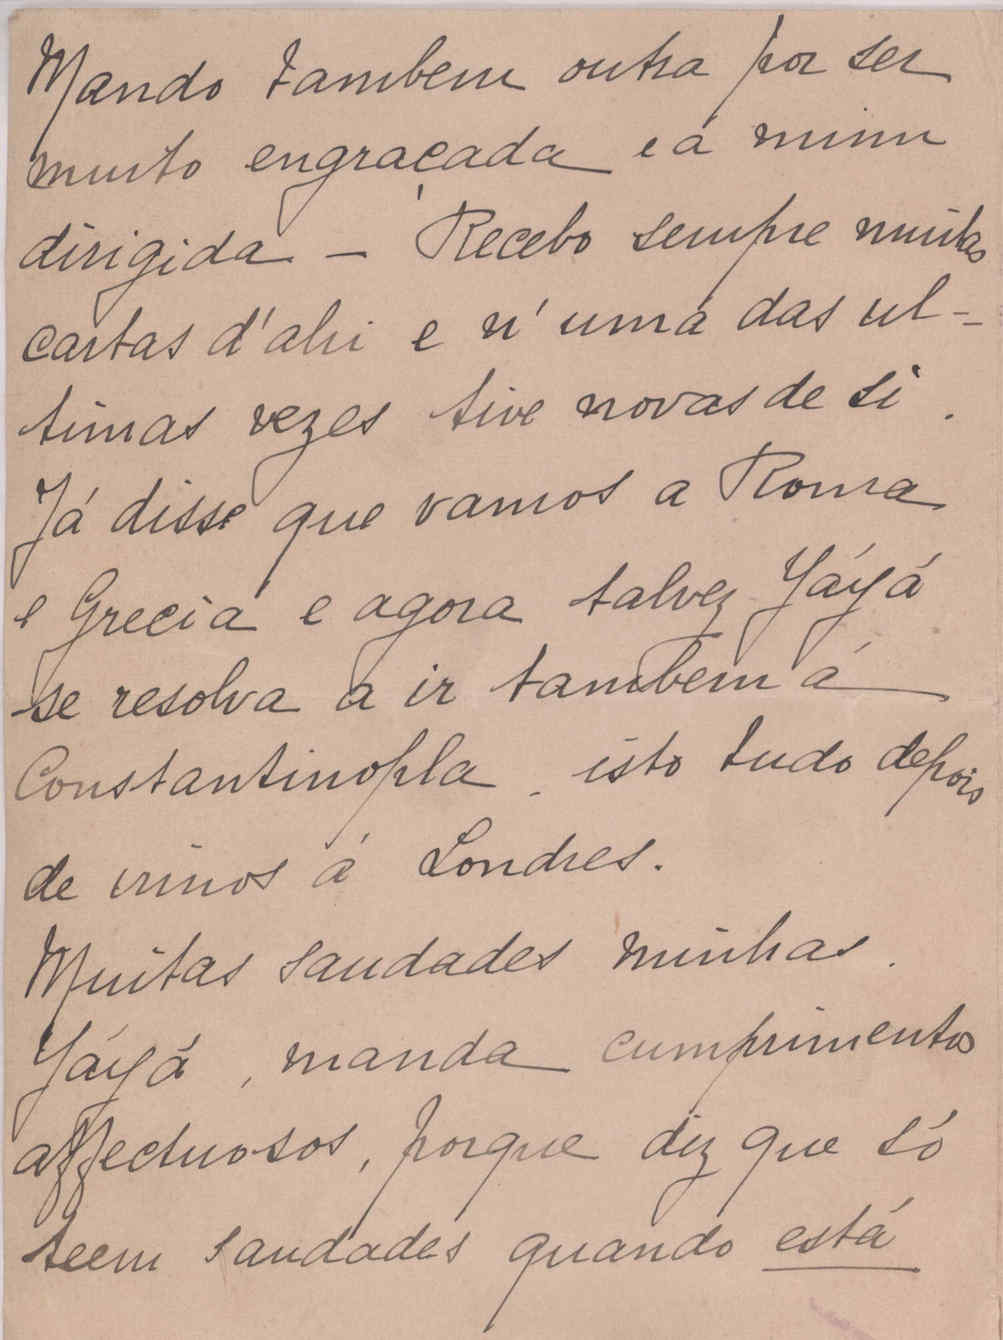 Mando tambem outra por ser
muito engraçada e á mim
dirigida — Recebo sempre muitas
cartas d'ahi e n'uma das ul-
timas vezes tive novas de si.
Já disse que vamos a Roma
e Grecia e agora talvez Yáyá
se resolva a ir tambem á
Constantinopla, isto tudo depois
de irmos á Londres.
Muitas saudades minhas.
Yáyá, manda cumprimentos
affectuosos, porque diz que só
teem saudades quando está